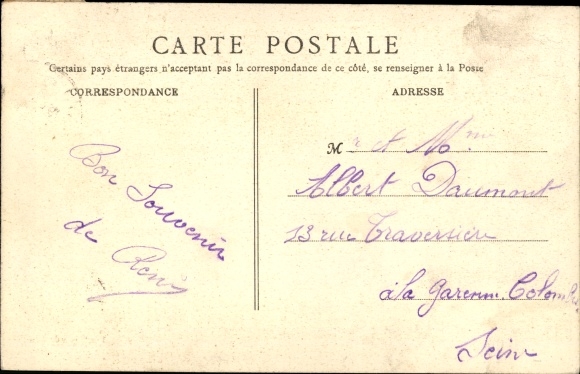 CARTE POSTALE
Certains pays étrangers n'acceptant pas la correspondance de ce côté, se renseigner à la Poste
CORRESPONDANCE
ADRESSE
Bon Souvenir
de René
Mr et Mme
Albert Daumont
13 rue Traversière
à la Garenne Colombes
Seine